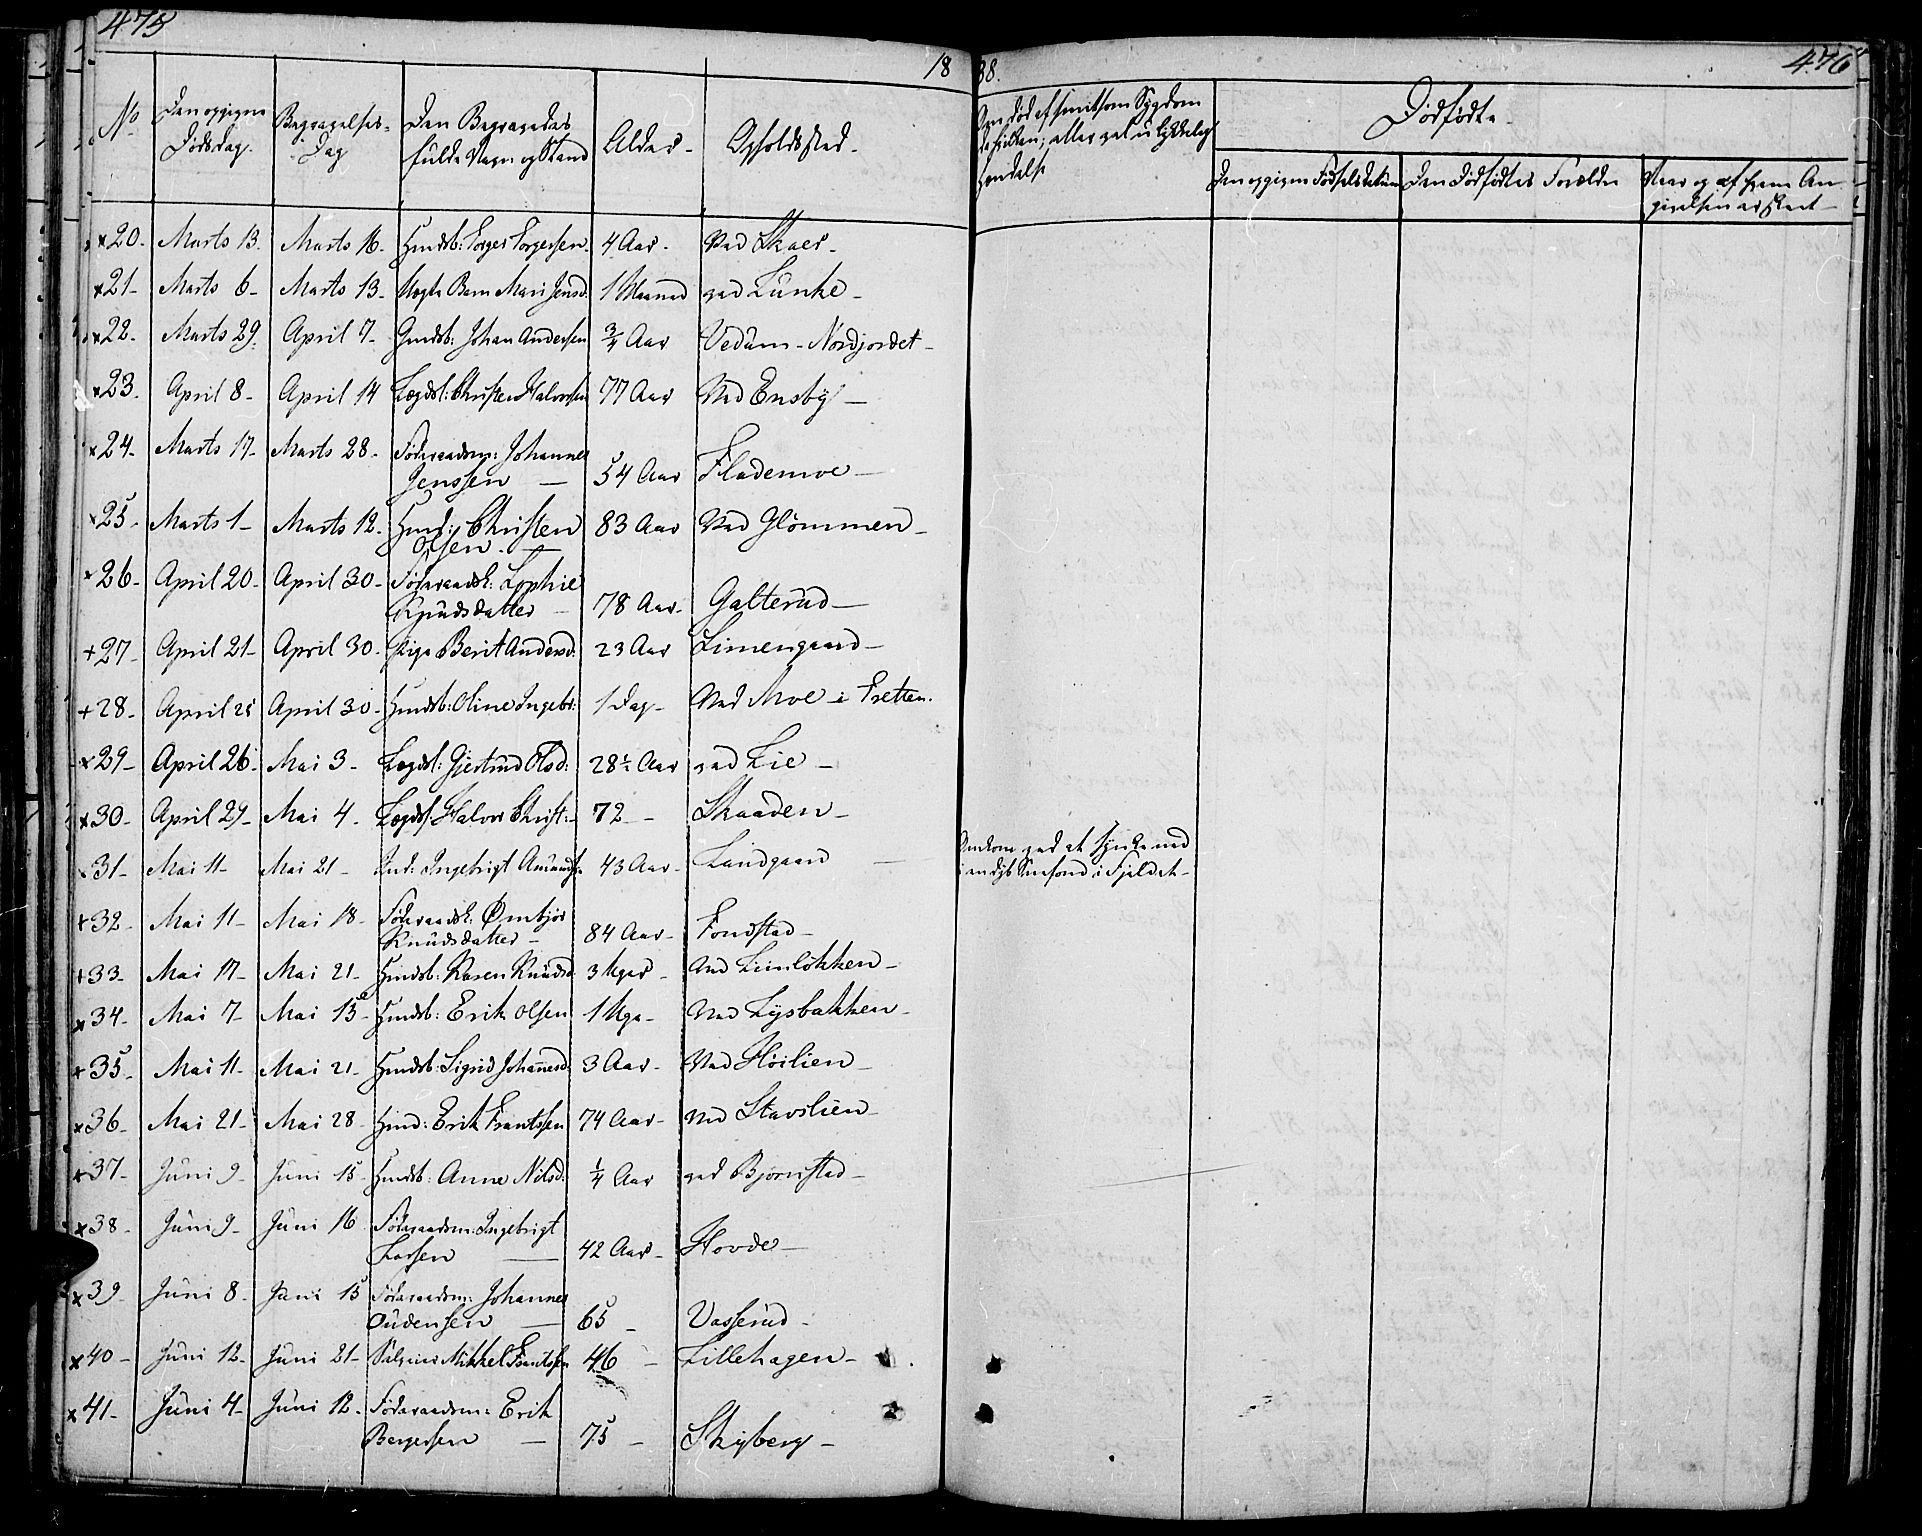 475
18
No
Den opgivne Dødsdag.
Begravelses-Dag
Den Begravedes fulde Navn og Stand
Alder-
Opholdsstad.
20. Marts 13. Marts 16. Huusb: Torger Torgersen. 4 Aar. Ved Skaer-
21- Marts 6- Marts 13. Uægte Barn Mari Jensd: 1 Maaned ved Lunke-
22. Marts 29. April 7- Gmdsb: Johan Andersen 3/4 Aar Vedum-Nordjordet-
23. April 8- April 14 Lægdsl: Christen Halvorsen 77 Aar Ved Ensby-
24- Marts 17- Marts 28- Føderaadsm: Johannes
Jenssen - 54 Aar Flademoe-
25- Marts 1- Marts 12. Huusm: Christen
Olsen. - 83 Aar Ved Glømmen-
26- April 20- April 30- Føderaadsk: Sophie
Knudsdatter - 78 Aar- Galterud-
27- April 21- April 30- Pige Berit Andersd: 23 Aar Limengaard-
28- April 25 April 30- Huusb: Oline Ingebr: 1 Dag- Ved Moe i Tretten.
29- April 26- Mai 3- Lægdsl: Gjertrud Olsd: 28½ Aar ved Lie-
30- April 29- Mai 4- Lægdsl: Halvor Christ:- 72- - Skaaden-
31- Mai 11- Mai 21- Ind: Ingebrigt Amunds: 43 Aar- Landgaard -
32- Mai 11- Mai 18- Føderaadsk: Ømbjør
Knudsdatter - 84 Aar- Fondstad-
33- Mai 17- Mai 21- Huusb: Karen Knudsd: 3 Uger- Ved Limløkken-
34- Mai 7- Mai 13- Huusb: Erik Olsen 1 Uge- Ved Lysbakken-
35- Mai 11- Mai 21- Huusb: Sigrid Johannesd: 3 Aar- Ved Høilien-
36- Mai 21- Mai 28- Huusm: Erik Frantssen 74 Aar- Ved Stavslien-
37- Juni 9- Juni 15- Huusb: Anne Nilsd: 1/4 Aar ved Bjørnstad-
38- Juni 9- Juni 16 Føderaadsm: Ingebrigt
Larsen - 42 Aar- Hovde-
39 Juni 8- Juni 15 Føderaadsm: Johannes
Oudensen - 65 - Vasserud-
40- Juni 12- Juni 21- Mikkel Frantssen 46 - Lillehagen-
41- Juni 4- Juni 12- Føderaadsm: Erik
Bergersen - 75 - Skyberg-
38.
476
Om død af smitsom Sygdom
eller ved ulykkelig
Hændelse
Dødfødte-
Den opgivne Fødselsdatum
Den Dødfødtes Forældre
Naar og af hvem An-
givelsen er skeet-
Omkom ved at synke ned
i en dyb Sneefond i Fjeldet-